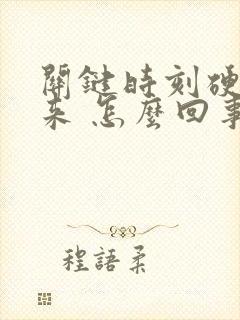 關鍵時刻硬
來 怎麼回事
程語柔